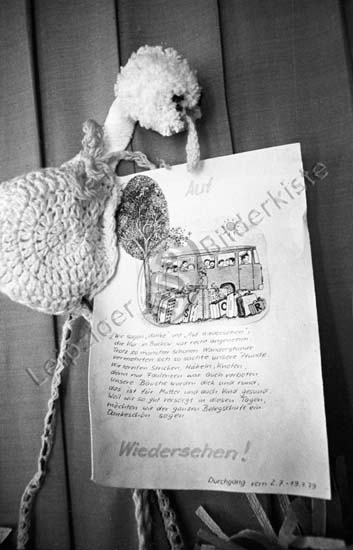 Auf
Wir sagen „danke" und „Auf Wiedersehen",
die Kur in Barkow war recht angenehm.
Trotz so mancher schönen Wanderstunde
vermehrten sich so sachte unsere Pfunde.
Wir lernten Stricken, Häkeln, Knoten,
denn nur Faulenzen war auch verboten.
Unsere Bäuche wurden dick und rund,
das ist für Mutter und auch Kind gesund.
Weil wir so gut versorgt in diesen Tagen,
möchten wir der ganzen Belegschaft ein
Dankeschön sagen.
Wiedersehen!
Durchgang vom 2.7.-19.7.79
Leipziger Bilderkiste